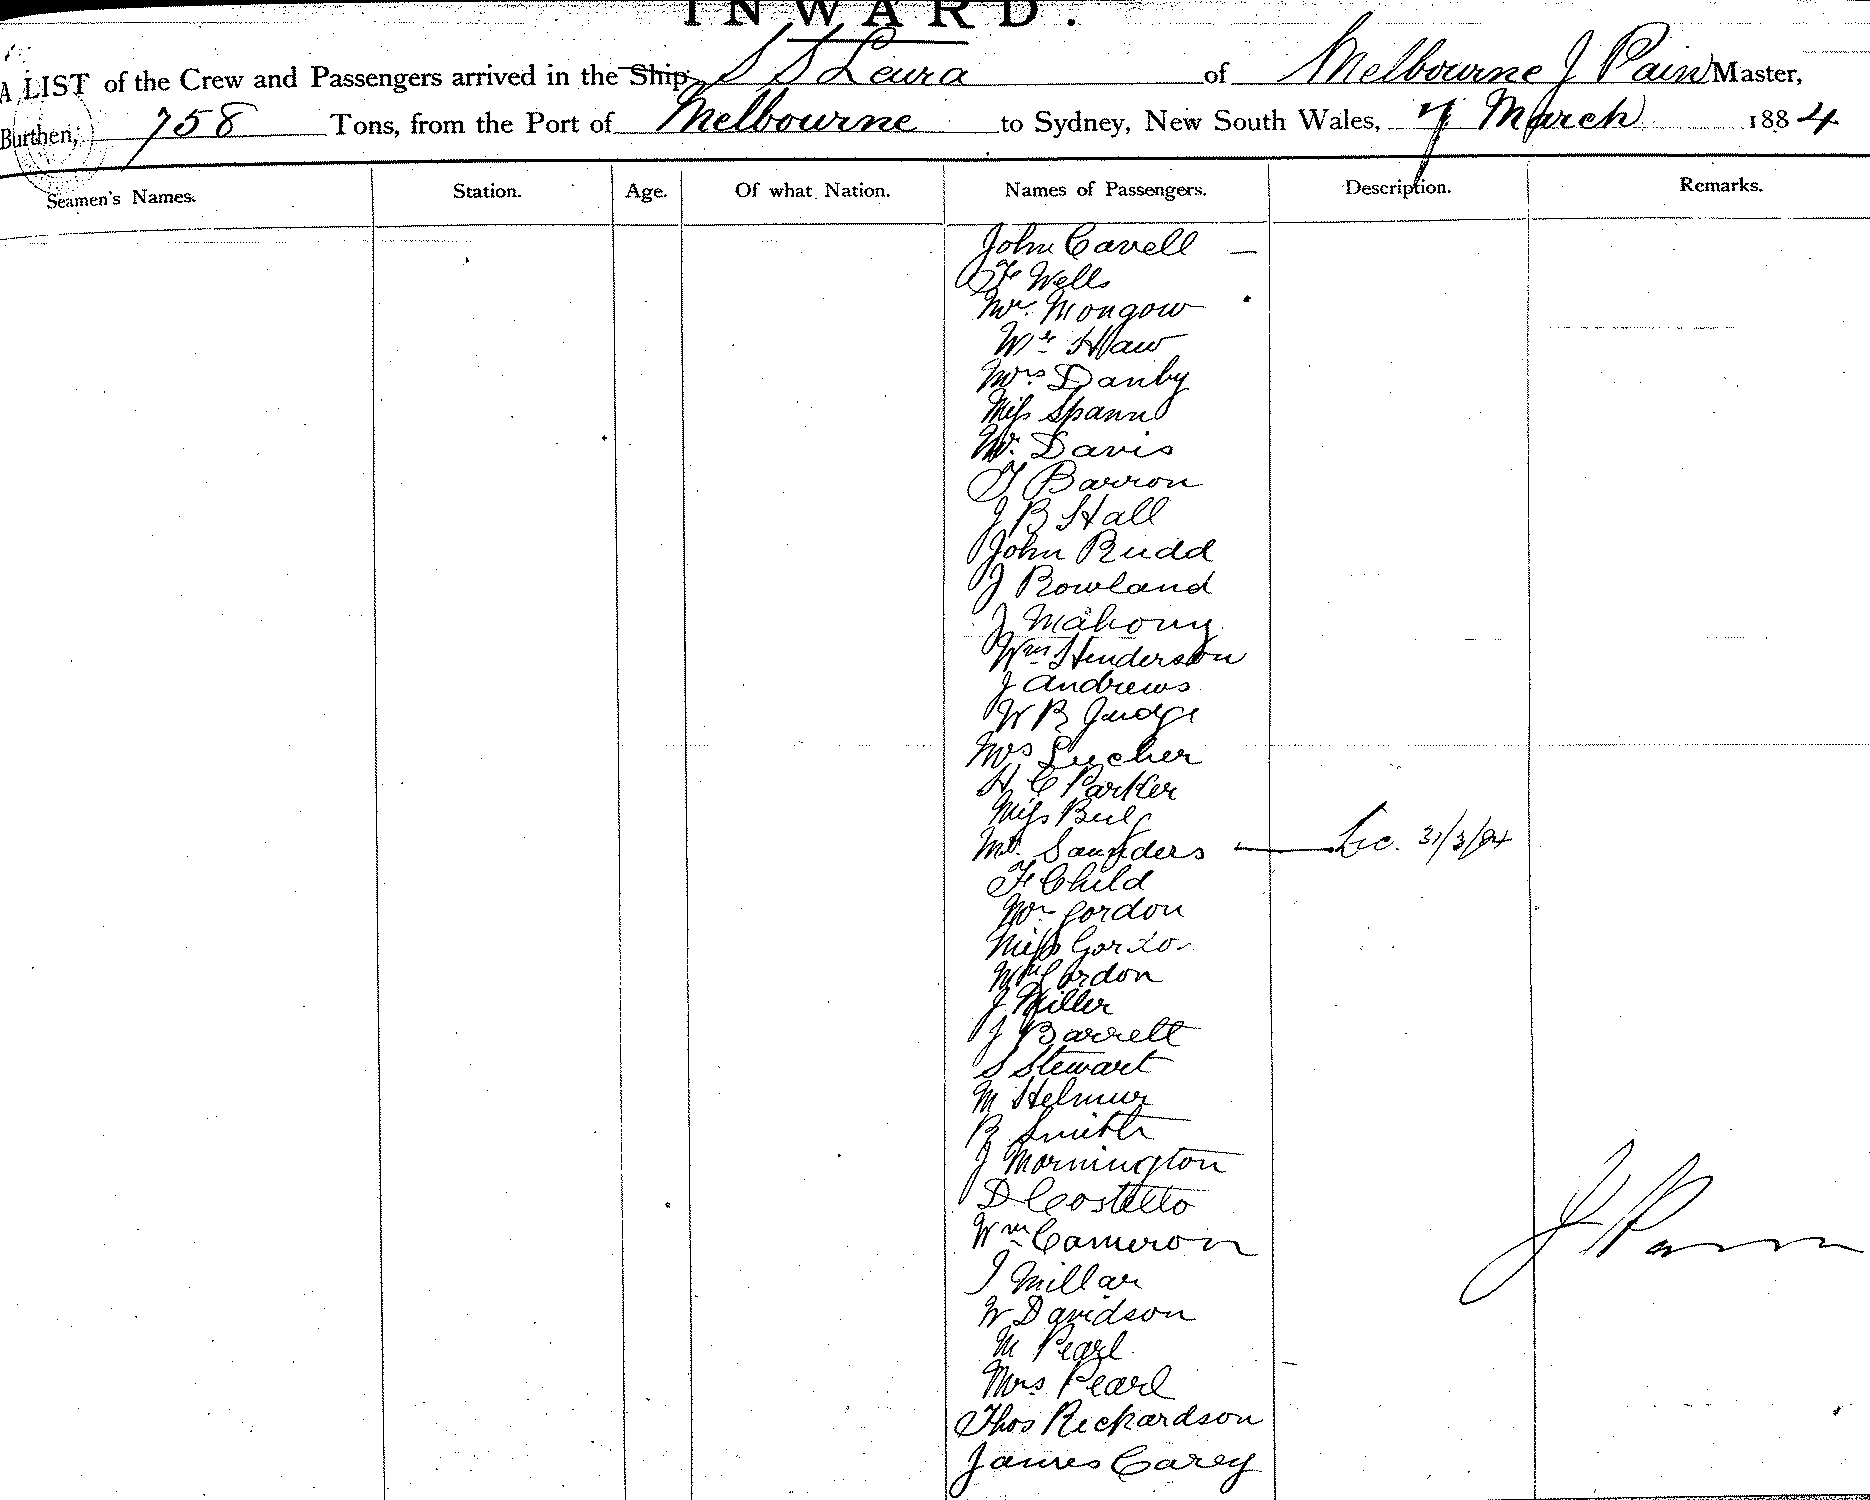 INWARD.
A LIST of the Crew and Passengers arrived in the Ship S S Leura of Melbourne J Pain Master,
Burthen, 758 Tons, from the Port of Melbourne to Sydney, New South Wales, 7 March 1884
Seamen's Names. Station. Age. Of what Nation. Names of Passengers. Description. Remarks.
John Cavell —
F Wells
Mr. Mongow
Mr Haw
Mrs Danby
Miss Spann
W. Davis
T Barron
J B Hall
John Rudd
J Rowland
J Mahony
Wm Henderson
J Andrews
W B Judge
Mrs Lucher
H C Parker
Miss
Saunders — 31/3/84
F Child
Mr Gordon
Miss Gordo
Gordon
J Miller
J Barrett
S Stewart
M
R Smith
J Mornington
D Costello
Wm Cameron
J Millar
W Davidson
M Pearl
Mrs Pearl
Thos Richardson
James Carey
J Pain